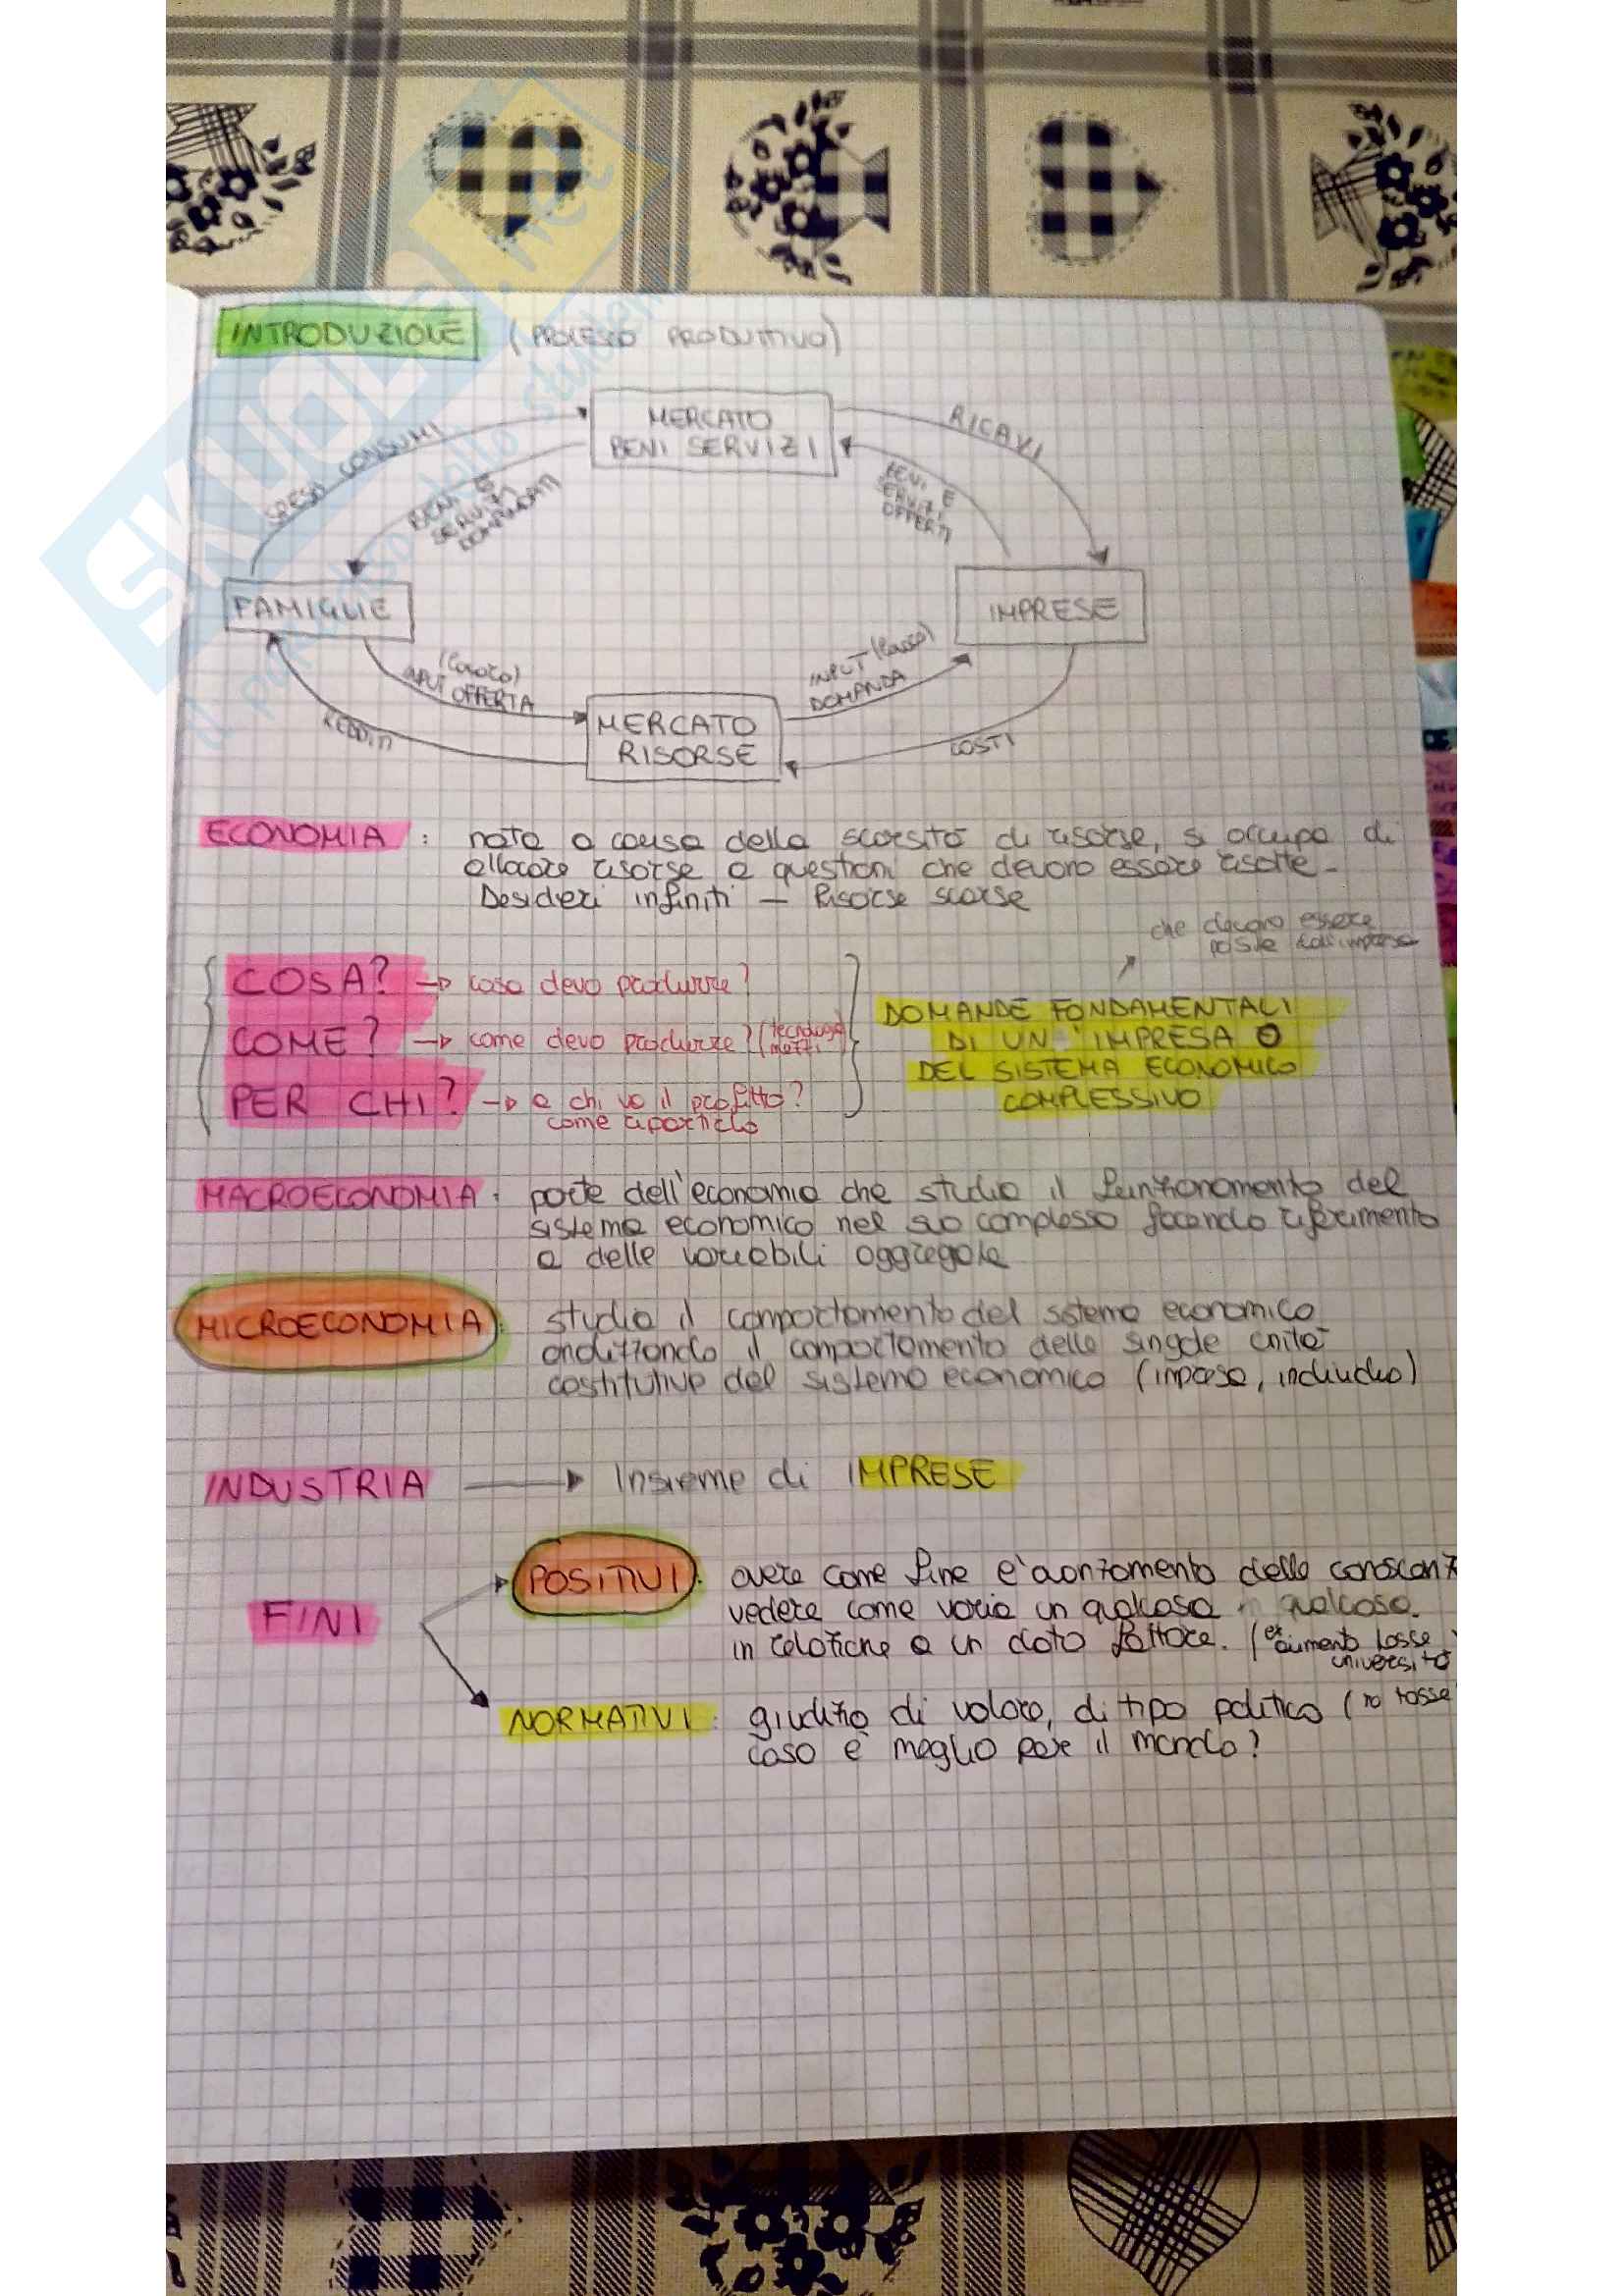 INTRODUZIONE (PROCESSO PRODUTTIVO)
MERCATO
BENI SERVIZI
RICAVI
SPESA CONSUMI
BENI E
SERVIZI
DOMANDATI
BENI E
SERVIZI
OFFERTI
FAMIGLIE
IMPRESE
(lavoro)
INPUT OFFERTA
INPUT (lavoro)
DOMANDA
MERCATO
RISORSE
REDDITI
COSTI
ECONOMIA : nata a causa della scarsità di risorse, si occupa di
allocare risorse a questioni che devono essere risolte-
Desideri infiniti — Risorse scarse
che devono essere
poste dall'impresa
COSA? → cosa devo produrre?
COME? → come devo produrre? (tecnologia
mezzi
PER CHI? → a chi va il profitto?
come ripartirlo
DOMANDE FONDAMENTALI
DI UN' IMPRESA O
DEL SISTEMA ECONOMICO
COMPLESSIVO
MACROECONOMIA : parte dell'economia che studia il funzionamento del
sistema economico nel suo complesso facendo riferimento
a delle variabili aggregate
MICROECONOMIA : studia il comportamento del sistema economico
analizzando il comportamento delle singole unità
costitutive del sistema economico (impresa, individuo)
INDUSTRIA → Insieme di IMPRESE
FINI
POSITIVI : avere come fine l'avanzamento delle
vedere come varia un qualcosa in qualcosa.
in relazione a un dato fattore. (es aumento tasse
università
NORMATIVI : giudizio di valore, di tipo politico (no tasse
cosa è meglio per il mondo?
SKUOLA.net
il paradiso dello studente